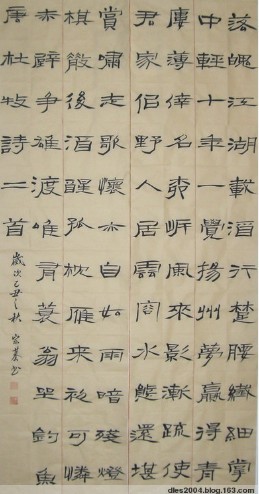 落魄江湖載酒行楚腰纖細掌
中輕十年一覺揚州夢贏得青
樓薄倖名柳岸風來影漸疏使
君家侣野人居雲容水態還堪
賞嘯志歌懷亦自如雨暗殘燈
棋散後酒醒孤枕雁來初可憐
赤壁爭雄渡唯有蓑翁坐釣魚
唐杜牧詩二首
歲次己丑之秋
dles2004.blog.163.com